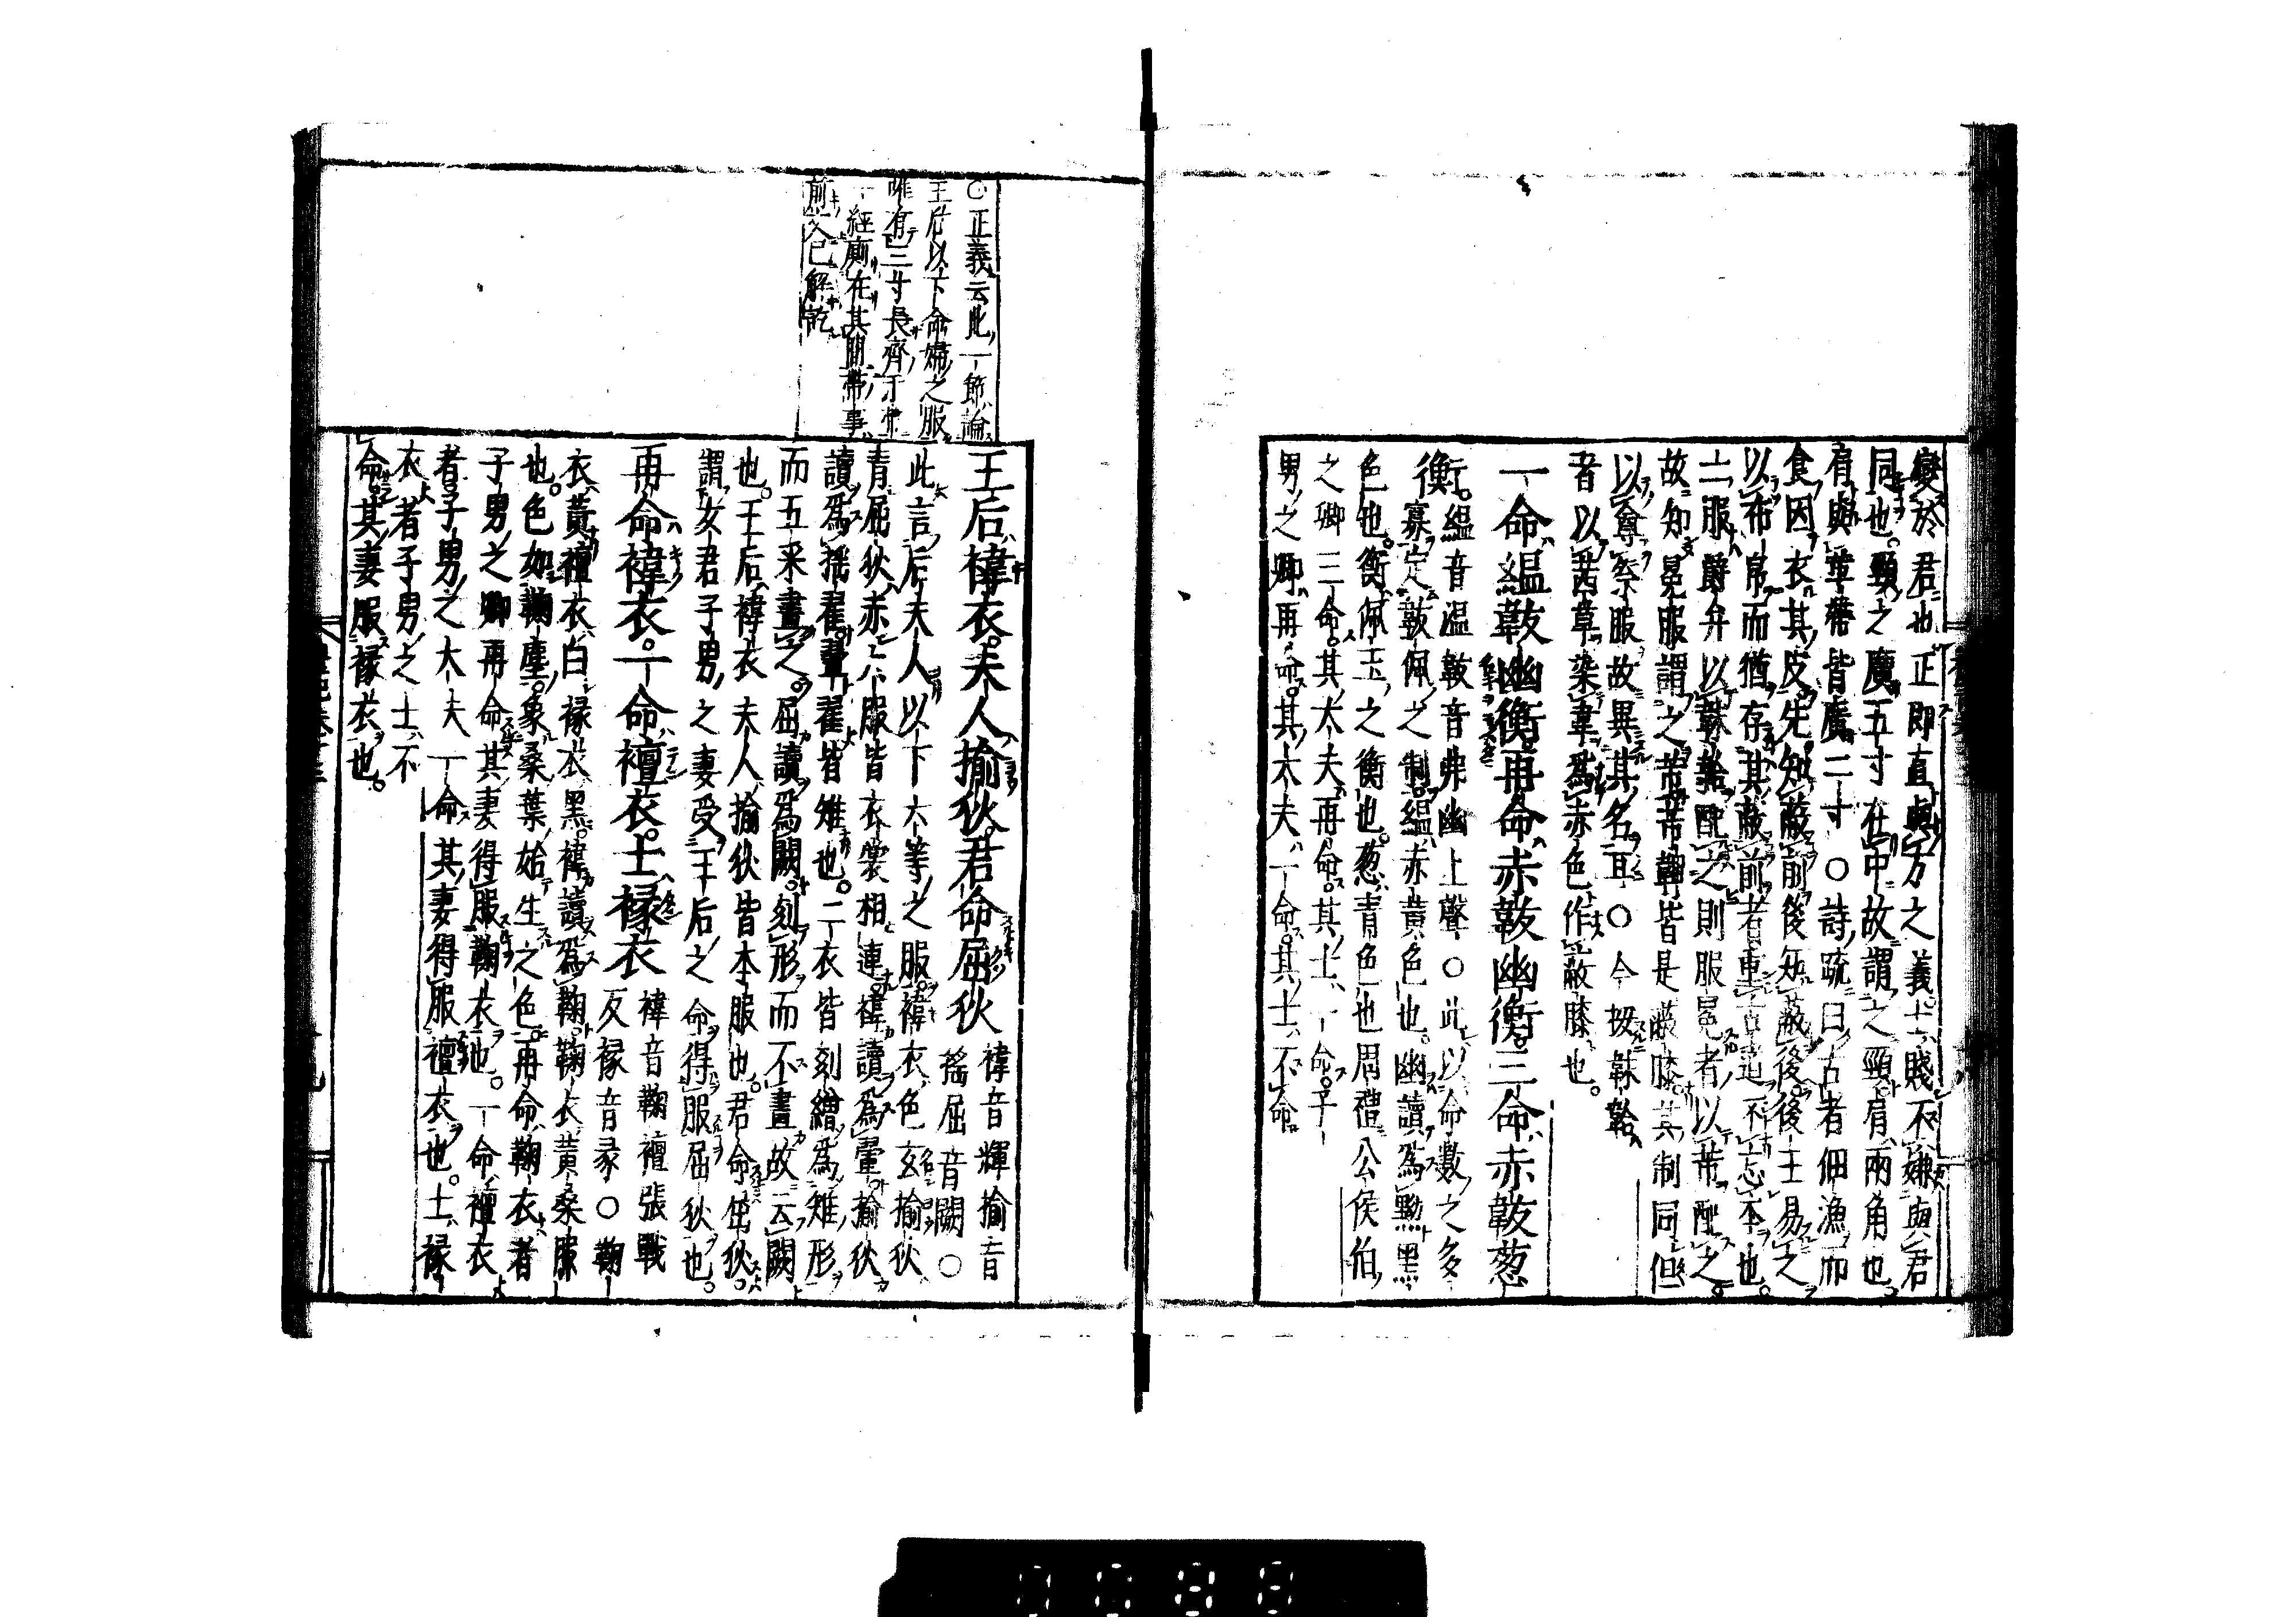 變於君也正即直與方之義士賤不嫌與君
同也頸之廣五寸在中故謂之頸肩兩角也
肩與革帶皆廣二寸○詩疏曰古者佃漁而
食因衣其皮先知蔽前後知蔽後後王易之
以布帛而猶存其蔽前者重古道不忘本也
士服爵弁以韎韐配之則服冕者以芾配之
故知冕服謂之芾芾韠皆是蔽膝其制同但
以尊祭服故異其名耳○今按韎韐
者以茜草染韋爲赤色作蔽膝也。
一命縕韍幽衡再命赤韍幽衡三命赤韍葱
衡。縕音温韍音弗幽上聲○此以命數之多
寡定韍佩之制縕赤黃色也幽讀爲黝黑
色也衡佩玉之衡也葱青色也周禮公侯伯
之卿三命其大夫再命其士一命子
男之卿再命其大夫一命其士不命
○正義云此一節論
王后以下命婦之服
唯有二寸長齊于帶
一經廁在其間帶事
前文已解訖
王后褘衣。夫人揄狄。君命屈狄
褘音輝揄音
搖屈音闕○
此言后夫人以下六等之服褘衣色玄揄狄
青屈狄赤六服皆衣裳相連褘讀爲翬揄狄
讀爲搖翟翬翟皆雉也。二衣皆刻繒爲雉形
而五采畫之。屈讀爲闕刻形而不畫故云闕
也。王后褘衣夫人揄狄皆本服也。君命屈狄
謂女君子男之妻受王后之命得服屈狄也。
再命褘衣。一命襢衣。士褖衣
褘音鞠襢張戰
反褖音彖○鞠
衣黃襢衣白褖衣黑褘讀爲鞠鞠衣黃桑服
也。色如鞠塵象桑葉始生之色再命鞠衣者
子男之卿再命其妻得服鞠衣也。一命襢衣
者子男之大夫一命其妻得服襢衣也。士褖
衣者子男之士不
命其妻服褖衣也。